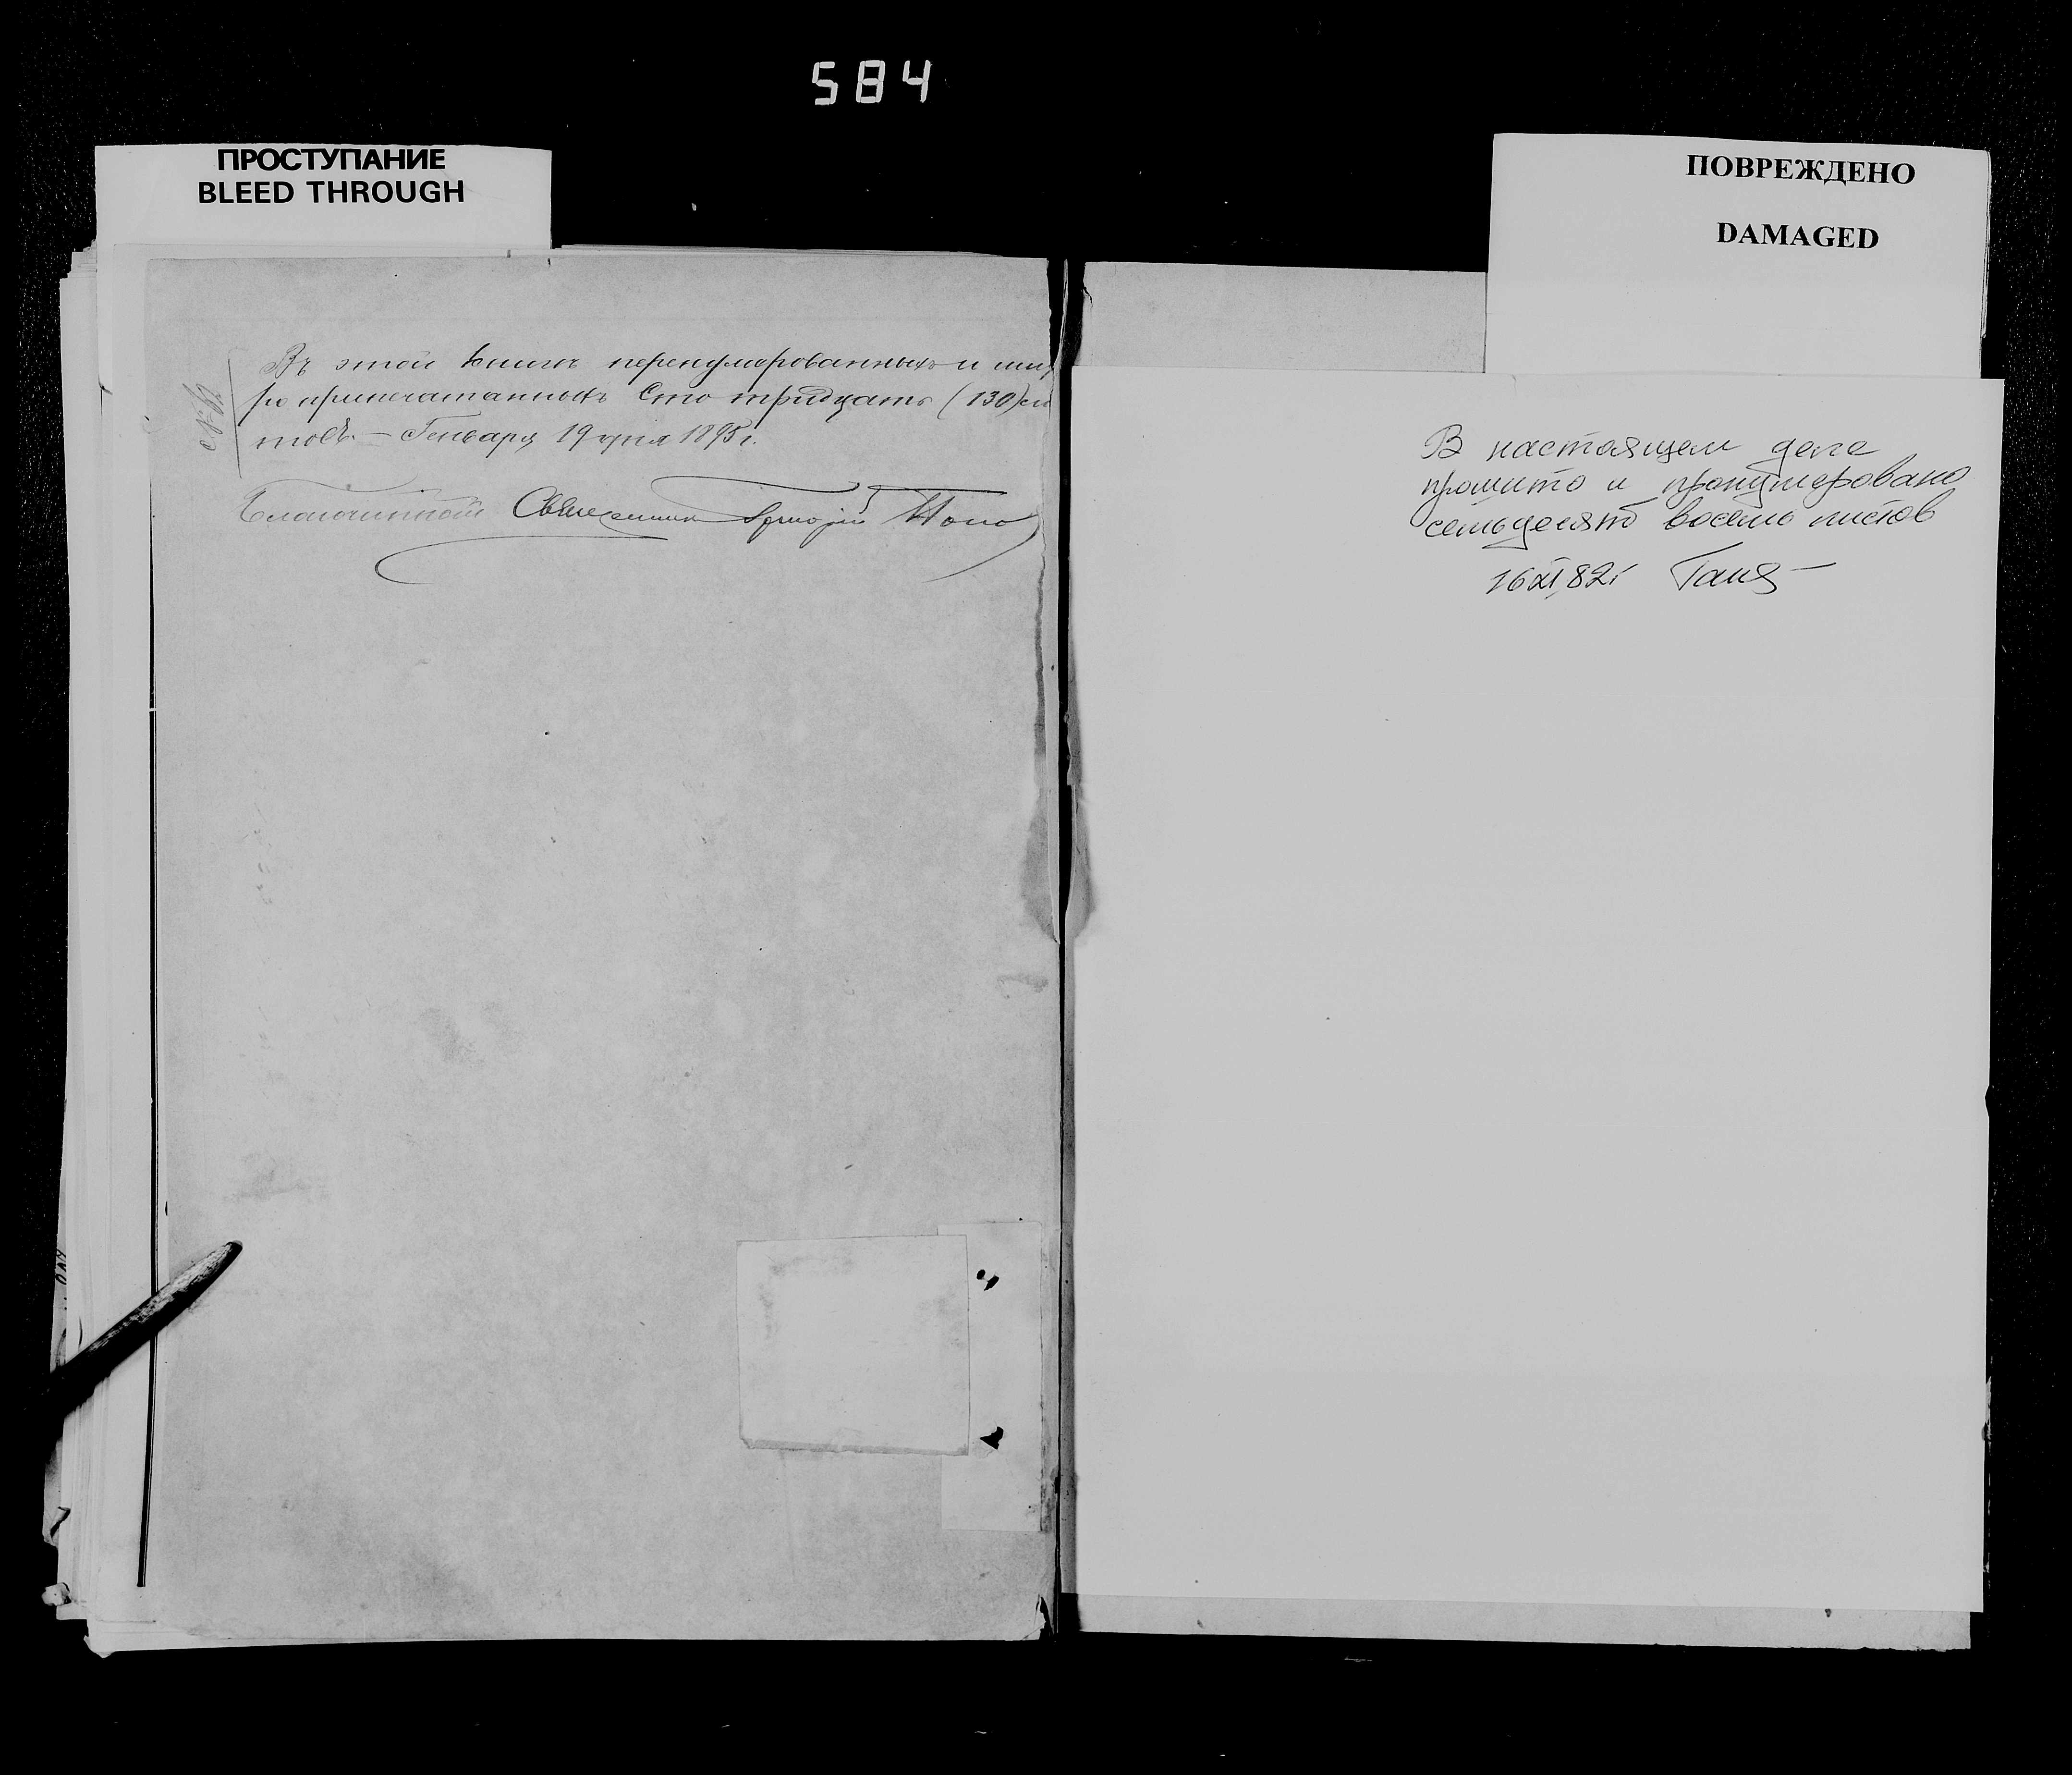 584
ПРОСТУПАНИЕ
BLEED THROUGH
ПОВРЕЖДЕНО
DAMAGED
Въ этой книгѣ перенумерованныхъ и
припечатанныхъ Сто тридцать (130)
товъ. – Генваря 19 дня 1895 г.
Благочинный Священникъ Григорій
В настоящем деле
прошито и пронумеровано
семьдесят восемь листов
16 XI 82г